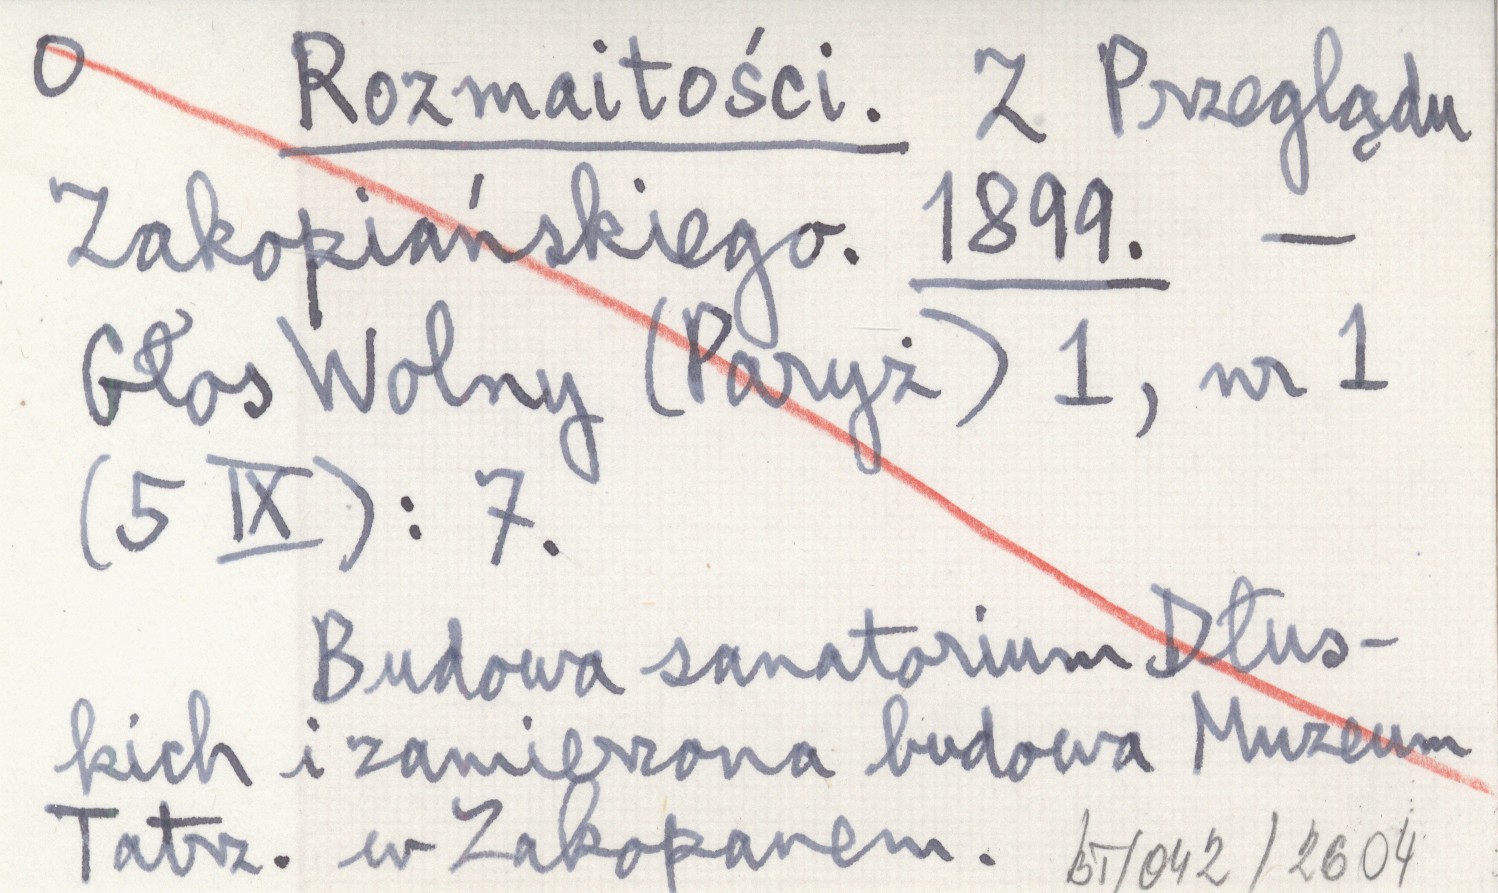 O Rozmaitości. Z Przeglądu
Zakopiańskiego. 1899. —
Głos Wolny (Paryż) 1, nr 1
(5 IX): 7.
Budowa sanatorium Dłus-
kich i zamierzona budowa Muzeum
Tatrz. w Zakopanem.
bT/042/2604